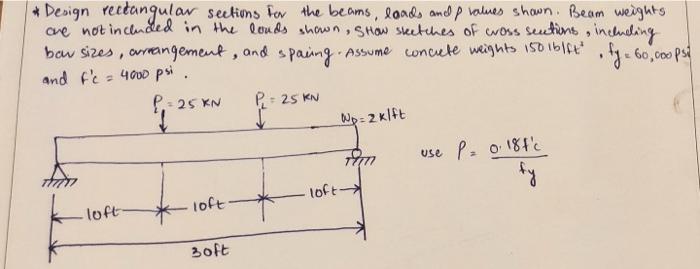 * Design rectangular sections for the beams, loads and ρ values shown. Beam weights
are not included in the loads shown, show sketches of cross sections, including
bar sizes, arrangement, and spacing. Assume concrete weights 150 lb/ft³, fy = 60,000 psi
and f'c = 4000 psi.
PL = 25 KN PL = 25 KN
WD = 2 k/ft
use ρ = 0.18f'c / fy
10ft 10ft 10ft
30ft